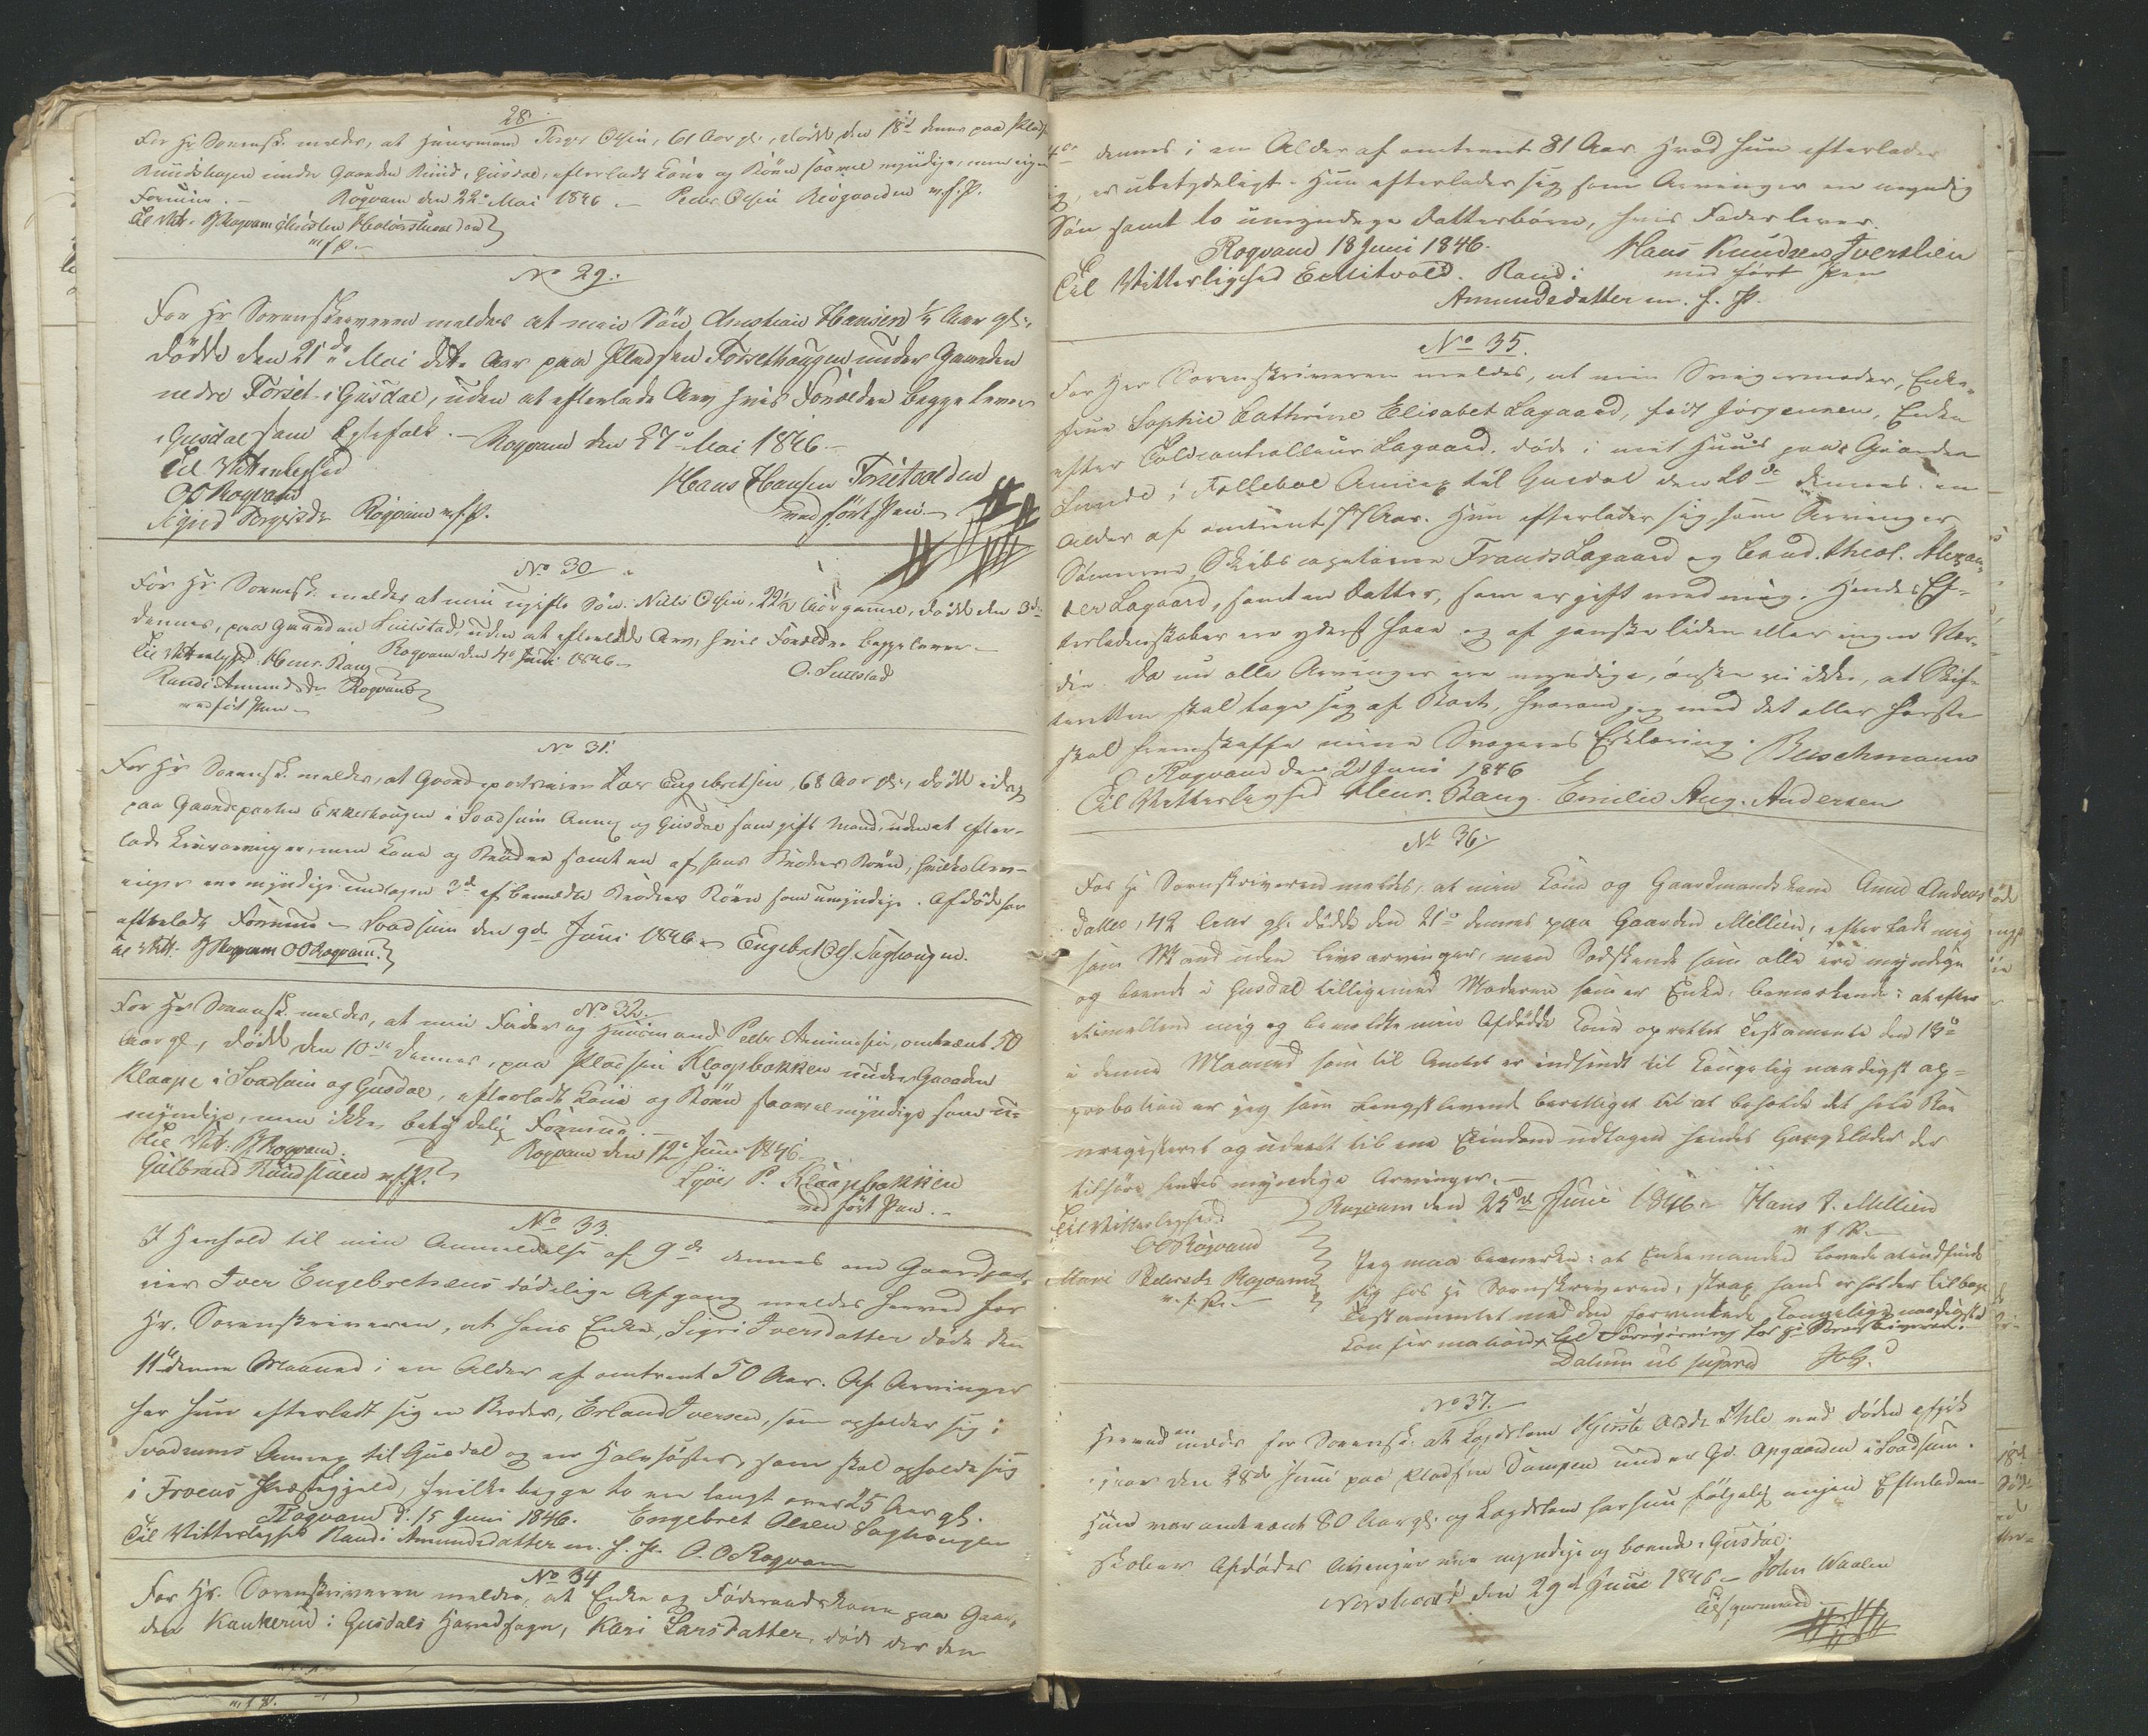 28.
For Hr Sorensk. meldes, at Huusmand Torger Olsen, 61 Aar gl., døde den 18de dennes paa Pladsen
Rundshagen under Gaarden Rund, Gusdal, efterladt Kone og Børn saavel myndige, men ingen
Formue. — Rogvam den 22de Mai 1846 — Peder Olsen m. f. P.
Til Vitt.
m f P.
No 29.
For Hr Sorenskriveren meldes at min Søn Christian Hansen 1/4 Aar gl.,
døde den 21de Mai dette Aar paa Pladsen Forsethougen under Gaarden
nedre Forset i Gusdal, uden at efterlade Arv, hvis Forældre begge lever
i Gusdal som Egtefolk. — Rogvam den 27de Mai 1846. —
Til Vitterlighed
OO Rogvam
Hans Hansen Forsetvolden
med ført Pen.
Rogvam m. f. P.
No 30
For Hr Sorensk. meldes at min ugifte Søn Nils Olsen, 22½ Aar gammel, døde den 3de
dennes, paa Gaarden Sulstad, uden at efterlade Arv, hvis Forældre begge lever —
Til Vitterlighed Henr. Bang Rogvam den 4de Juni 1846 —
O. Sulstad
Randi Amundsdr Rogvam
med ført Pen —
No 31.
For Hr Sorensk. meldes, at Iver Engebretsen, 68 Aar gl., døde
paa Gaardeparten Ekkerhougen i Svadsum Annex og Gusdal som gift Mand, uden at efter-
lade Livsarvinger, men Kone og Brødre samt en af hans Brødres Børn, hvilke Arv-
inger ere myndige undtagen 2de af bemeldte Brødres Børn som umyndige. Afdøde har
efterladt Formue — Svadsum den 9de Juni 1846 — Engebret Ols. Saghougen.
Til Vitt. OO Rogvam.
No 32.
For Hr Sorensk. meldes, at min Fader og Huusmand Peder Amundsen, omtrent 50
Aar gl., døde den 10de dennes, paa Pladsen Klaapbakken under Gaarden
Klaape i Svadsum og Gusdal, efterladt Kone og Børn saavel myndige som u-
myndige, men ikke betydelig Formue. —
Til Vitt. Rogvam. Rogvam den 12te Juni 1846.
Gulbrand Rundstuen m. f. P.
P. Klaapbakken
med ført Pen. —
No 33.
I Henhold til min Anmeldelse af 9de dennes om Gaardpart-
eier Iver Engebretsens dødelige Afgang meldes herved for
Hr. Sorenskriveren, at hans Enke, Sigri Iversdatter døde den
11te denne Maaned i en Alder af omtrent 50 Aar. Af Arvinger
har hun efterladt sig en Broder, Erland Iversen, som opholder sig i
Svadsums Annex til Gusdal og en Halvsøster, som skal opholde sig
i Froens Præstegjeld, hvilke begge to ere langt over 25 Aar gl.
Rogvam d. 15 Juni 1846. Engebret Olsen Saghougen
Til Vitterlighed Randi Amundsdatter m. f. P. O. O Rogvam
No 34
For Hr. Sorenskriveren meldes, at Enke og Føderaadskone paa Gaar-
den Kankerud i Gusdals Hovedsogn, Kari Larsdatter, døde der den
dennes i en Alder af omtrent 81 Aar. Hvad hun efterlader
sig, er ubetydeligt. Hun efterlader sig som Arvinger en myndig
Søn samt to umyndige Datterbørn, hvis Fader lever.
Rogvam 18 Juni 1846. Hans Knudsen Iverslien
Til Vitterlighed E. Mitvold. Randi med ført Pen
Amundsdatter m. f. P.
No 35.
For Herr Sorenskriveren meldes, at min Svigermoder, Enke-
frue Sophie Cathrine Elisabet Lagaard, født Jørgensen, Enke
efter Toldcontrolleur Lagaard, døde i mit Huus paa Gaarden
Lunde i Folleboe Annex til Gusdal den 20de dennes i en
Alder af omtrent 77 Aar. Hun efterlader sig som Arvinger
Sønnerne Skibscapitaine Frands Lagaard og Cand. theol. Alexan-
der Lagaard, samt en Datter, som er gift med mig. Hendes Ef-
terladenskaber ere yderst faae og af ganske liden eller ingen Vær-
die. Da nu alle Arvinger ere myndige, ønske vi ikke, at Skif-
teretten skal tage sig af Boet, hvorom jeg med det aller første
skal fremskaffe mine Svogeres Erklæring. Buschmann
Rogvam den 21 Juni 1846
Til Vitterlighed Henr. Bang. Emilie Aug. Andersen
No 36.
For Hr Sorenskriveren meldes, at min Kone og Gaardmandskone Anne Anders-
datter, 42 Aar gl. døde den 21de dennes paa Gaarden Mellien, efterladt mig
som Mand uden Livsarvinger, men Sødskende som alle ere myndige
og boende i Gusdal tilligemed Moderen som er Enke, bemærkende: at efter
imellem mig og bemeldte min Afdøde Kone oprettet Testamente den 18de
i denne Maaned som til Amtet er indsendt til Kongelig naadigst ap-
probation er jeg som Længstlevende berettiget til at beholde det hele Boe
uregisteret og udeelt til een Eiendom undtagen hendes Gangklæder der
tilhøre hendes myndige Arvinger. —
Til Vitterlighed: Rogvam den 25de Juni 1846 — Hans J. Mellien
m f P. —
OO Rogvam
Mari Pedersdr Rogvam
m. f. P. —
Jeg maa bemærke: at Enkemanden lovede at indfinde
sig hos Hr Sorenskriveren, strax han erholder tilbage
Testamentet med den forventede Kongelige naadigste
Confirmation, til Forevisning for Hr Sorenskriveren.
Datum ut supra
No 37.
Herved meldes for Sorensk. at Lægdslem Kjersti Ihle ved Døden afgik
den 28de Juni paa Pladsen Dampen under Gd. Opgaarden i Svadsum.
Hun var omtrent 80 Aar gl. og Lægdslem har hun følgelig ingen Efterladen-
skaber Afdødes Arvinger ere myndige og boende i Gusdal.
den 29de Juni 1846 — John Waalen